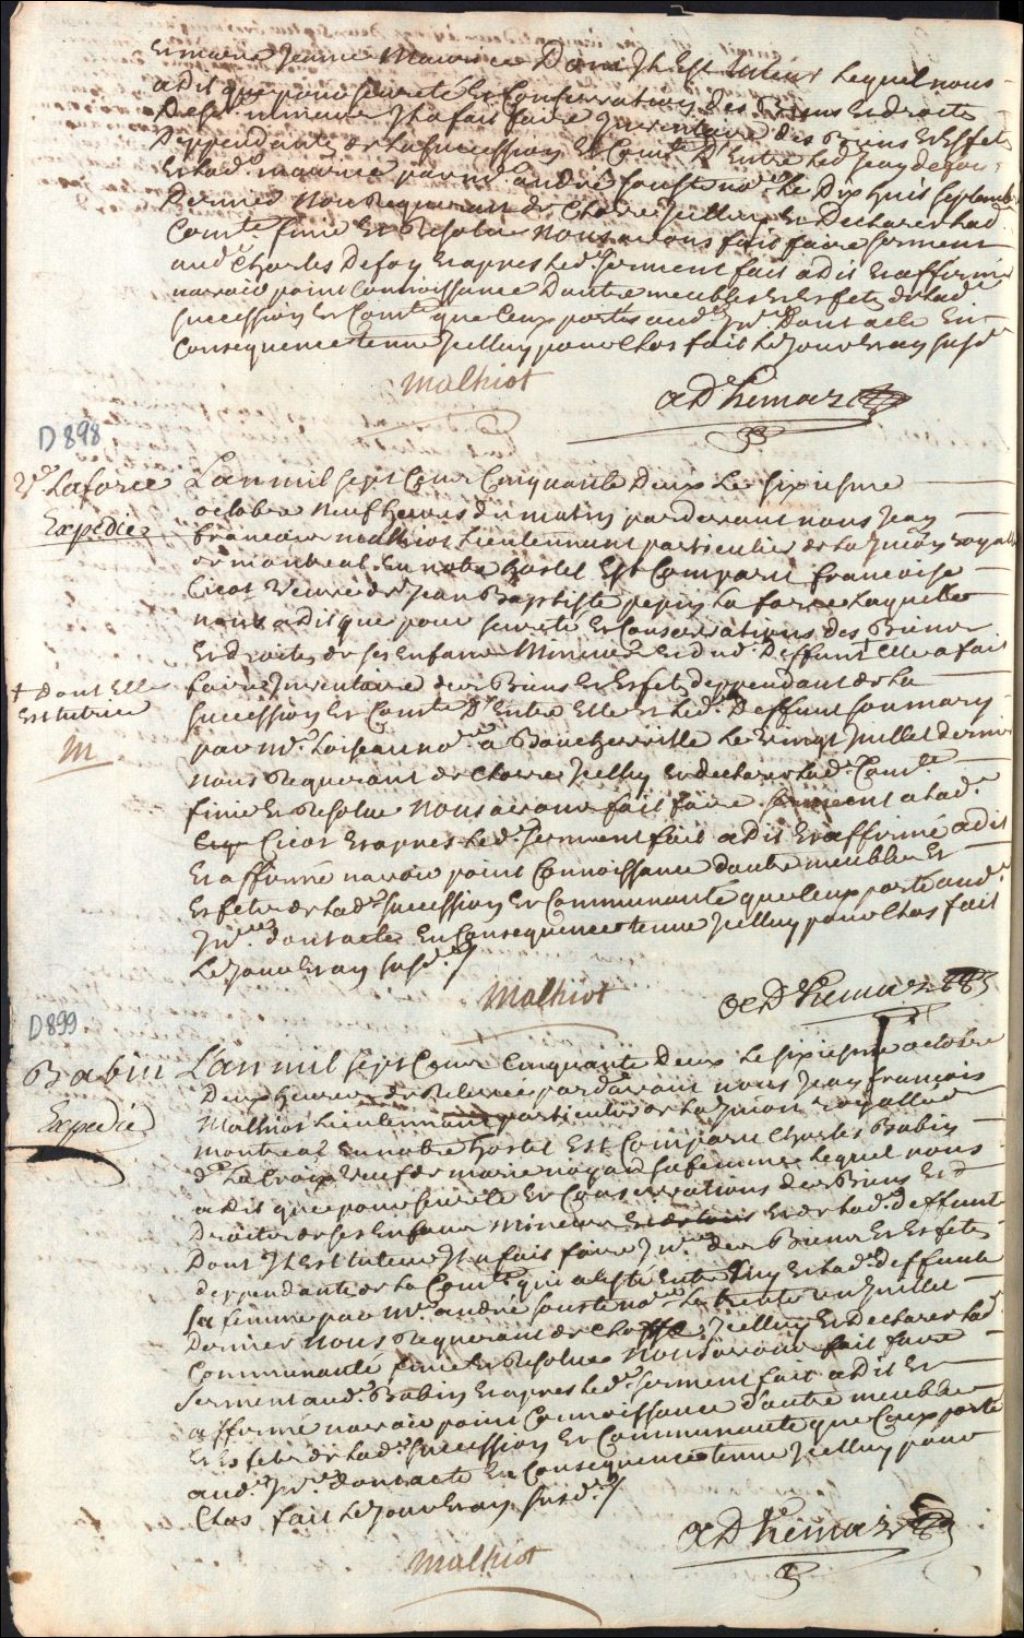 Et marie Jeanne Maurice Dont Il Est tuteur Lequel nous
a dit que pour sureté Et Conservations des Biens Et droits
Desd. mineurs Il a fait faire Inventaire des Biens Et Effets
Deppendants de La succession Et Com.té D'Entre Led. Jean defoy
Et Lad.e maurice par m.e andré souste no.re Le Dix huit septembre
Dernier Nous Requerant de Clorre Icelluy Et Declarer Lad.
Com.té finie Et Resolue Nous avons fait faire serment
aud. Charles Defoy Et apres Led. serment fait a dit Et affirmé
n'avoir point Connoissance Dautre meubles Et Effets de Lad.
succession Et Com.té que Ceux portés aud. Inv.re Dont acte En
Consequence tenue Icelluy pour Clos fait Le Jour Et an susd.
Malhiot
Adhemar
D898
V.e Laforce
Expédiée
L'an mil sept Cens Cinquante Deux Le sixiesme
octobre neuf heures du matin par devant nous Jean
francois malhiot Lieutennant particulier de La Jurion royalle
de montreal En notre hostel Est Comparu francoise
Cicot Veuve de Jean Baptiste pepin La force Laquelle
nous a dit que pour sureté Et Conservations des Biens
Et droits de ses Enfans Mineurs Et dud. Deffunt + Elle a fait
+ Dont Elle
Est tutrice
M
faire Inventaire des Biens Et Effets deppendant de La
succession Et Com.té D'Entre Elle Et Led. Deffunt son mary
par m.e Loiseau no.re a Boucherville Le vingt Juillet dernier
Nous Requerant de Clorre Icelluy Et declarer Lad.e Com.té
finie Et Resolue Nous avons fait faire serment a Lad.e
Cicot Et apres Led. serment fait a dit Et affirmé a dit
Et affirmé n'avoir point Connoissance dautre meubles Et
Effets de Lad.e succession Et Communauté que Ceux porté aud.
Inv.re dont acte En Consequence tenue Icelluy pour Clos fait
Le Jour Et an susd./
Malhiot
Adhemar
D899
Babin
Expedié
L'an mil sept Cens Cinquante Deux Le sixiesme octobre
Deux heures de Relevée par devant nous Jean francois
Malhiot Lieutennant particulier de La Jurion royalle de
montreal En notre hostel Est Comparu Charles Babin
d.t La Croix Veuf de marie noyau sa femme Lequel nous
a dit que pour sureté Et Conservations des Biens Et
Droits de ses Enfans Mineurs Et de Lad.e deffunte
Dont Il Est tuteur Il a fait faire Inv.re des Biens Et Effets
deppendants de La Com.té qui a Esté Entre Luy Et Lad. deffunte
sa femme par m.e andré souste no.re Le trente un Juillet
Dernier Nous Requerant de Clorre Icelluy Et Declarer Lad.
Communauté finie Et Resolue Nous avons fait faire
serment aud. Babin Et apres Led. serment fait a dit Et
affirmé n'avoir point Connoissance d'autre meubles
Et Effets de Lad.e succession Et Communauté que Ceux porté
aud. Inv.re dont acte En Consequence tenue Icelluy pour
Clos fait Le Jour Et an susd./
Adhemar
Malhiot